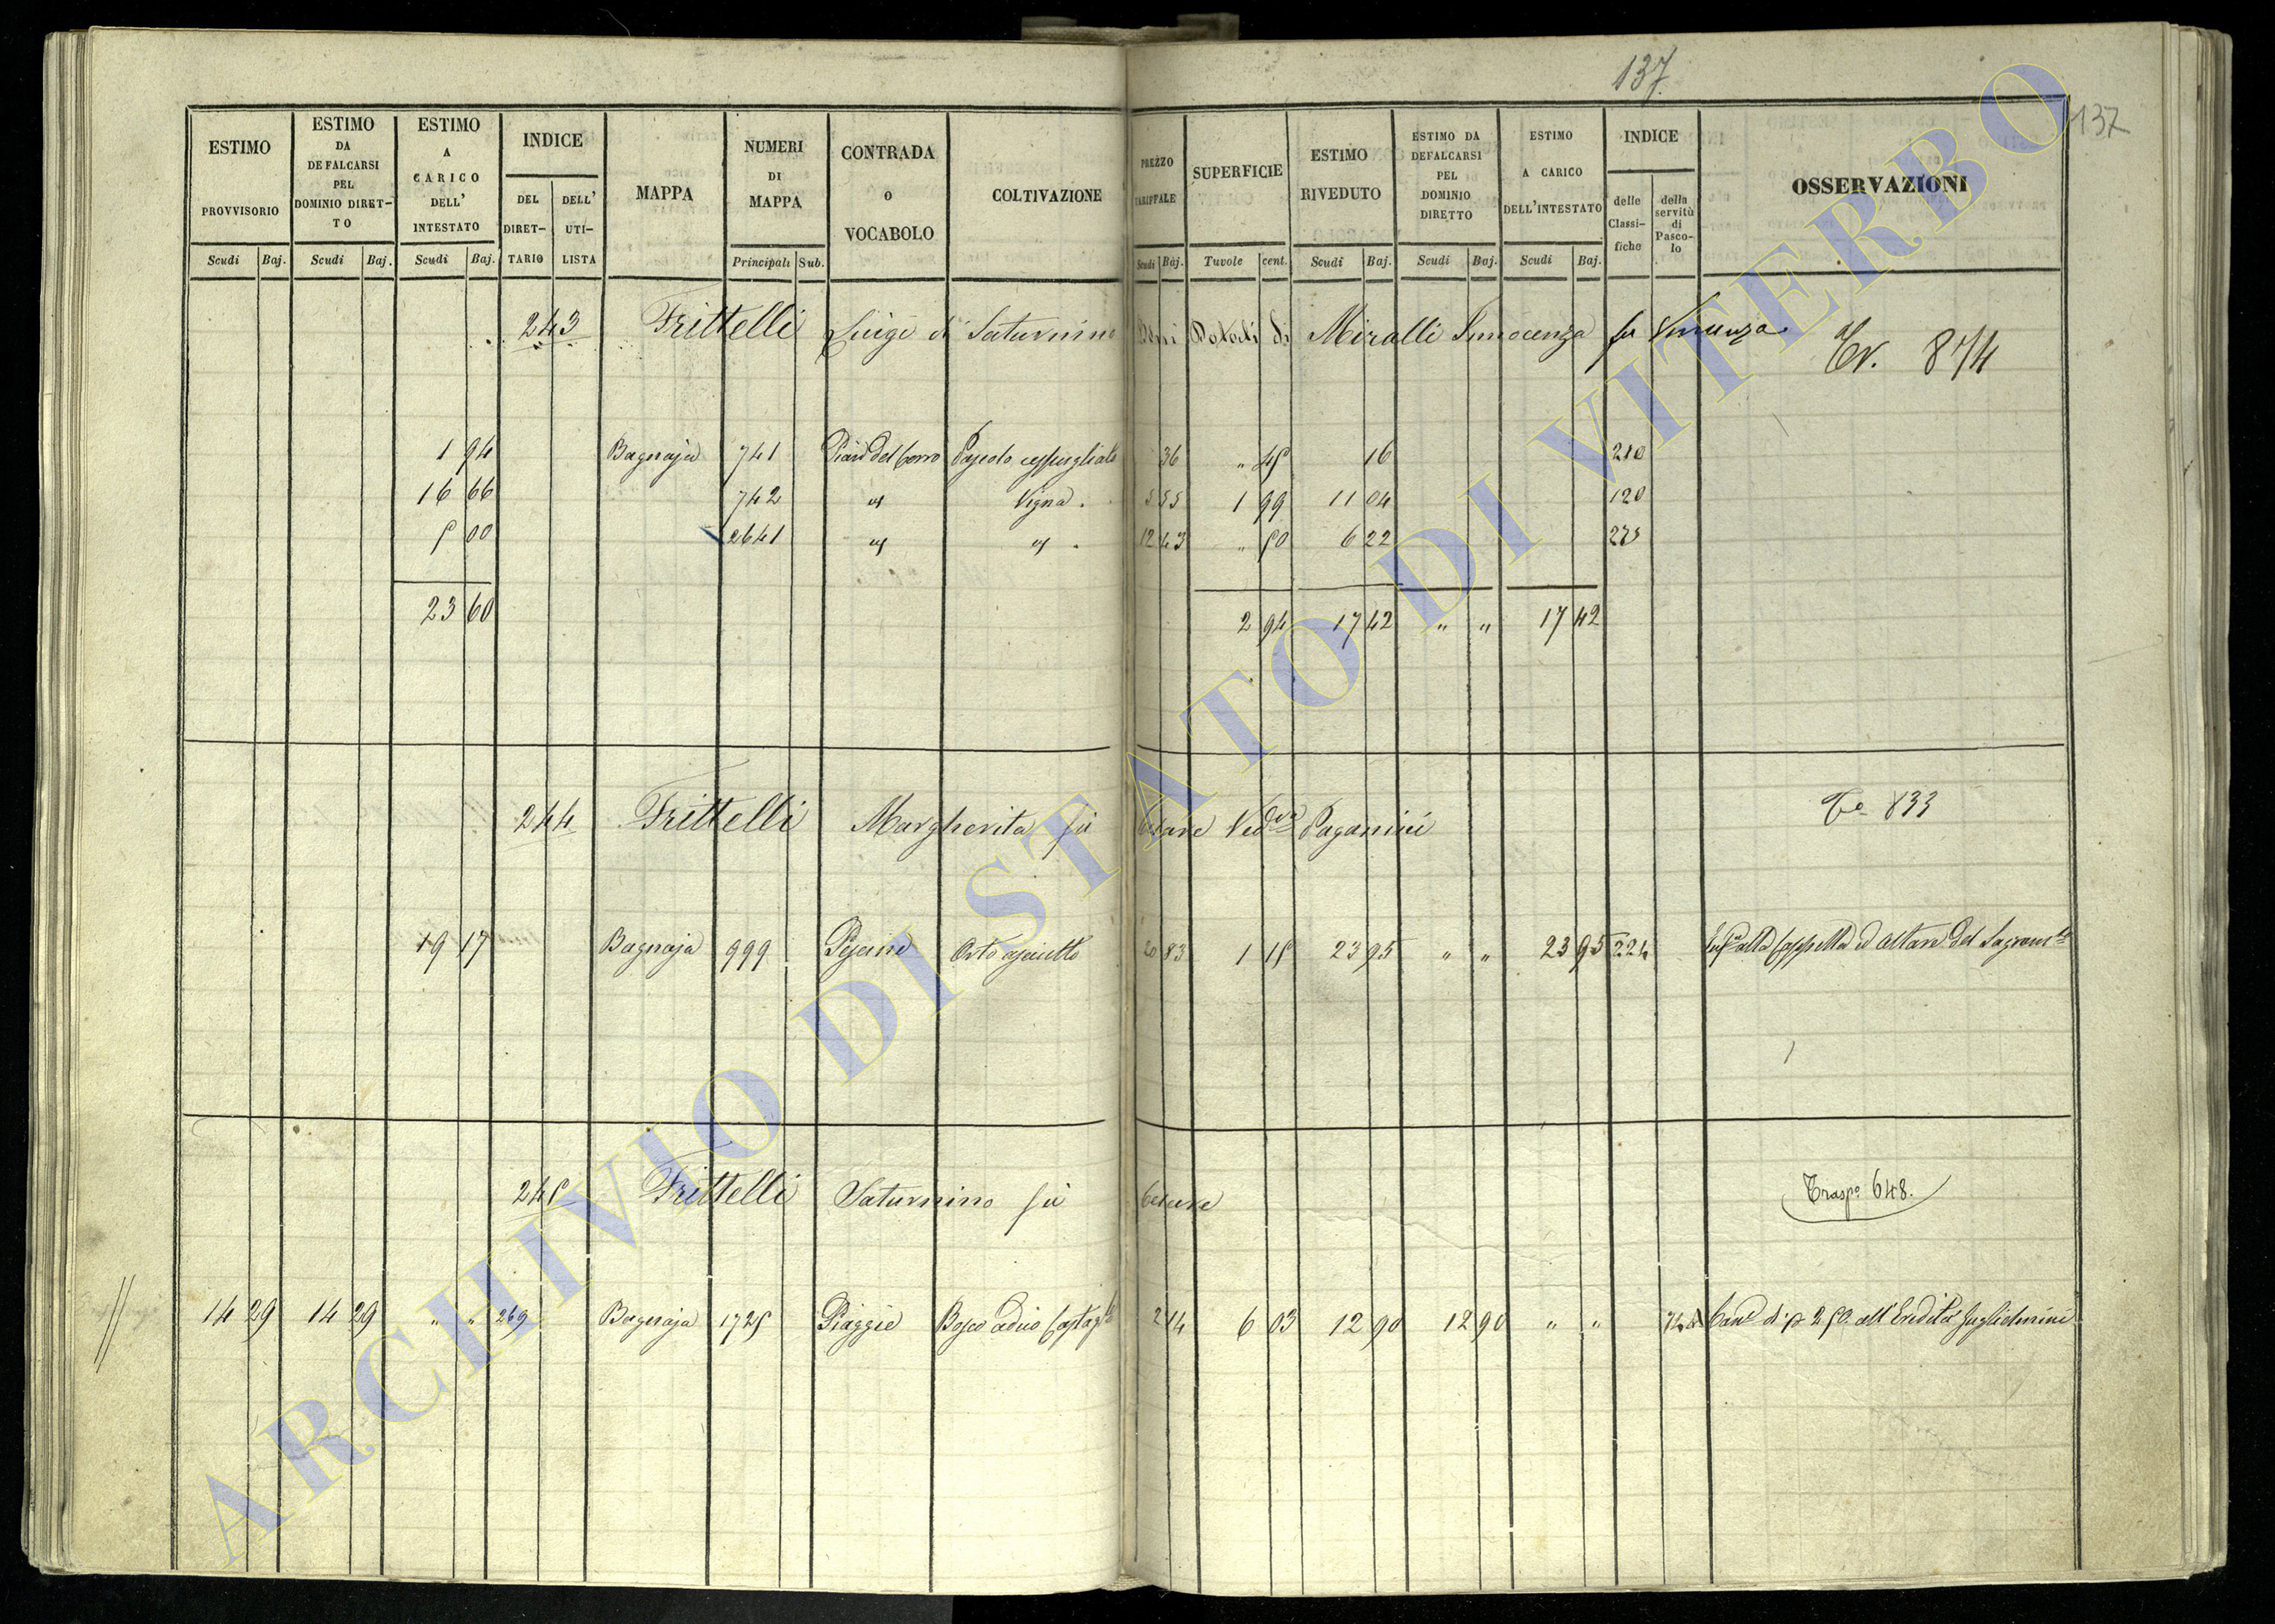 137
137
ESTIMO PROVVISORIO Scudi Baj.
ESTIMO DA DEFALCARSI PEL DOMINIO DIRETTO Scudi Baj.
ESTIMO A CARICO DELL' INTESTATO Scudi Baj.
INDICE DEL DIRETTARIO DELL' UTILISTA
MAPPA
NUMERI DI MAPPA Principali Sub.
CONTRADA o VOCABOLO
COLTIVAZIONE
PREZZO TARIFFALE Scudi Baj.
SUPERFICIE Tavole cent.
ESTIMO RIVEDUTO Scudi Baj.
ESTIMO DA DEFALCARSI PEL DOMINIO DIRETTO Scudi Baj.
ESTIMO A CARICO DELL'INTESTATO Scudi Baj.
INDICE delle Classifiche della servitù di Pascolo
OSSERVAZIONI
243 Frittelli Luigi di Saturnino Beni Dotali di Miralli Innocenza fu Vincenzo Tr. 874
1 94 Bagnaja 741 Pian del Cerro Pascolo cespugliato 36 " 45 16 210
16 66 742 " Vigna 5 55 1 99 11 04 120
5 00 2641 " " 12 43 " 50 6 22 275
23 60 2 94 17 42 " " 17 42
244 Frittelli Margherita fu Cesare Ved.va Paganini To 833
19 17 Bagnaja 999 Orto asciutto 20 83 1 15 23 95 " " 23 95 224 alla Cappella ed Altare del Sagram.to
245 Frittelli Saturnino fu Cesare Trasp.o 648.
14 29 14 29 " " 269 Bagnaja 1725 Piaggie Bosco ceduo Castag.to 2 14 6 03 12 90 12 90 " " Can.e di 2 50 all'Eredità Guglielmini
ARCHIVIO DI STATO DI VITERBO